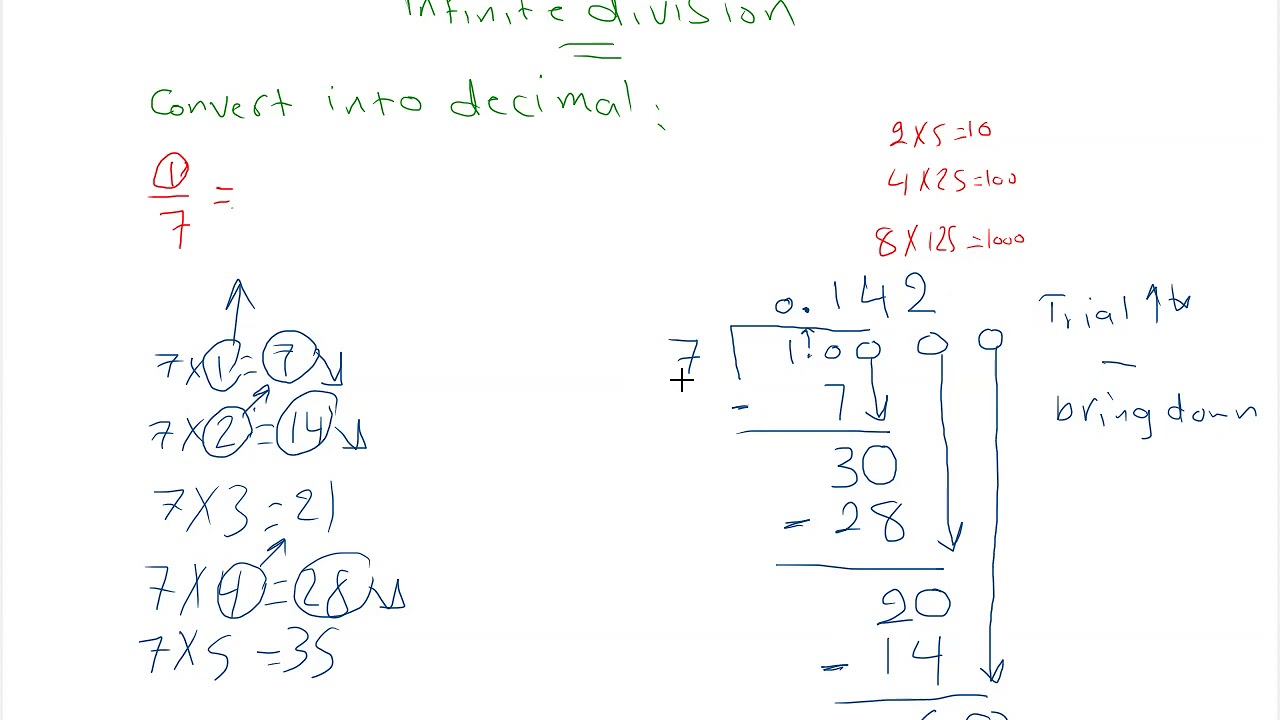 Infinite division
Convert into decimal:
1/7 =
2x5=10
4x25=100
8x125=1000
7x1=7
7x2=14
7x3=21
7x4=28
7x5=35
0.142
7 1.00 0 0
- 7
30
- 28
20
- 14
Trial
bring down